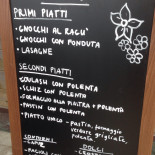 PRIMI PIATTI
• GNOCCHI AL RAGU'
• GNOCCHI CON FONDUTA
• LASAGNE
SECONDI PIATTI
• GOULASH CON POLENTA
• SCHIZ CON POLENTA
• FORMAGGIO ALLA PIASTRA + POLENTA
• PASTIN CON POLENTA
• PIATTO UNICO - PASTIN, FORMAGGIO
VERDURE GRIGLIATE,
CONTORNI
DOLCI